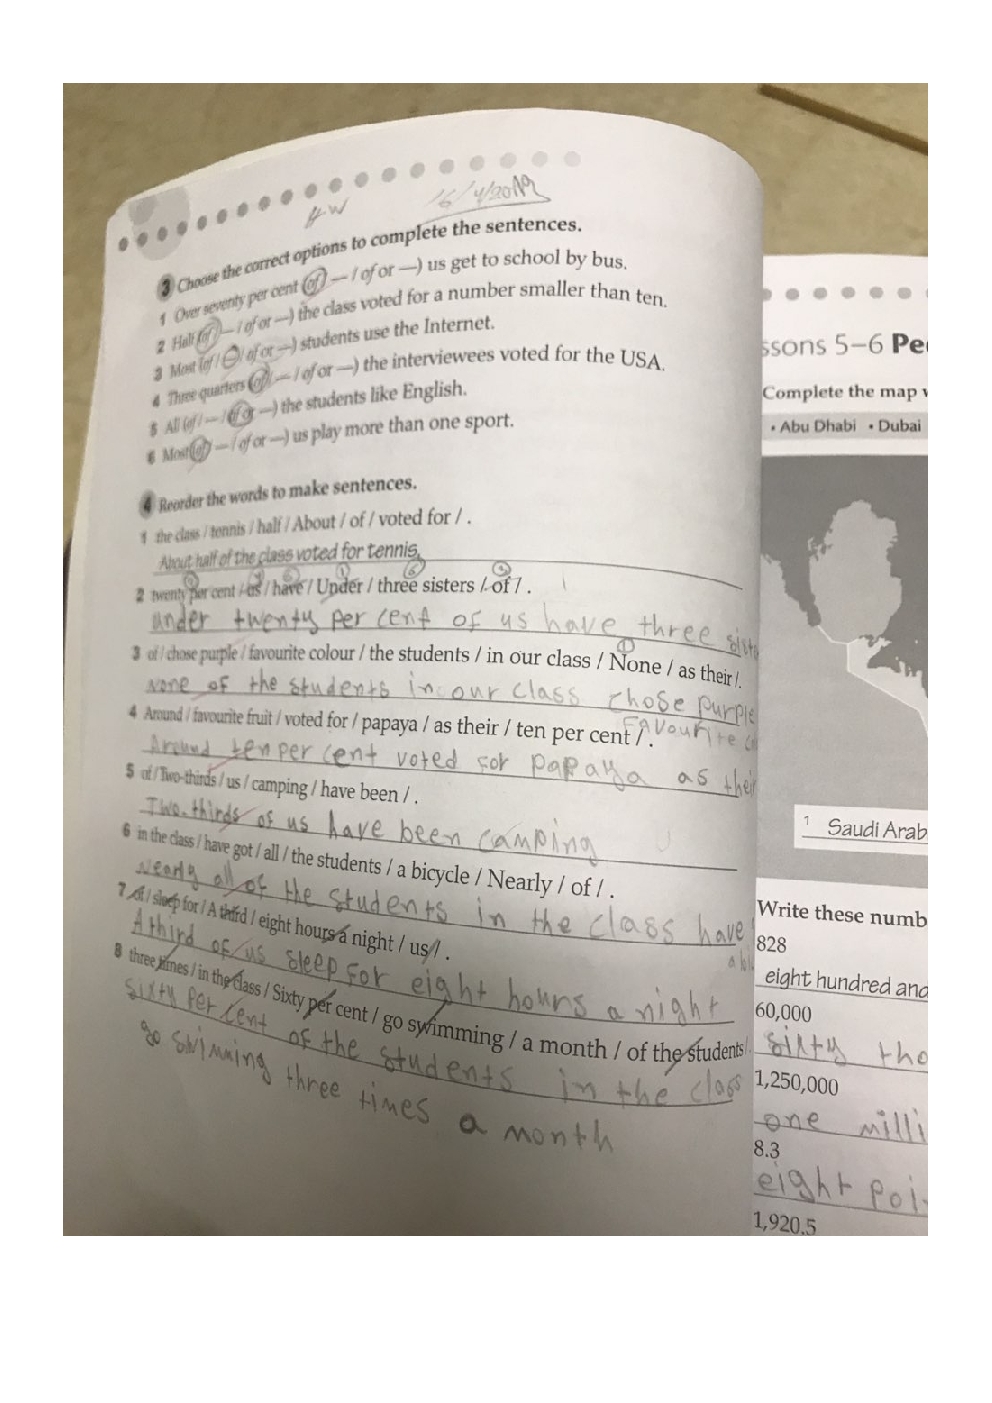 H-W
16/4/2019
3 Choose the correct options to complete the sentences.
1 Over seventy per cent (of / — / of or —) us get to school by bus.
2 Half (of / — / of or —) the class voted for a number smaller than ten.
3 Most (of / — / of or —) students use the Internet.
4 Three quarters (of / — / of or —) the interviewees voted for the USA.
5 All (of / — / of or —) the students like English.
6 Most (of / — / of or —) us play more than one sport.
4 Reorder the words to make sentences.
1 the class / tennis / half / About / of / voted for / .
About half of the class voted for tennis.
2 twenty per cent / us / have / Under / three sisters / of / .
under twenty per cent of us have three siste
3 of / chose purple / favourite colour / the students / in our class / None / as their / .
None of the students in our class chose purple
Favourite co
4 Around / favourite fruit / voted for / papaya / as their / ten per cent / .
Around ten per cent voted for papaya as their
5 of / Two-thirds / us / camping / have been / .
Two-thirds of us have been camping
6 in the class / have got / all / the students / a bicycle / Nearly / of / .
Nearly all of the students in the class have
a bi
7 of / sleep for / A third / eight hours a night / us / .
A third of us sleep for eight hours a night
8 three times / in the class / Sixty per cent / go swimming / a month / of the students / .
sixty per cent of the students in the class
go swimming three times a month
ssons 5–6 Pe
Complete the map
• Abu Dhabi • Dubai
1 Saudi Arab
Write these numb
828
eight hundred and
60,000
sixty tho
1,250,000
one milli
8.3
eight poi
1,920.5